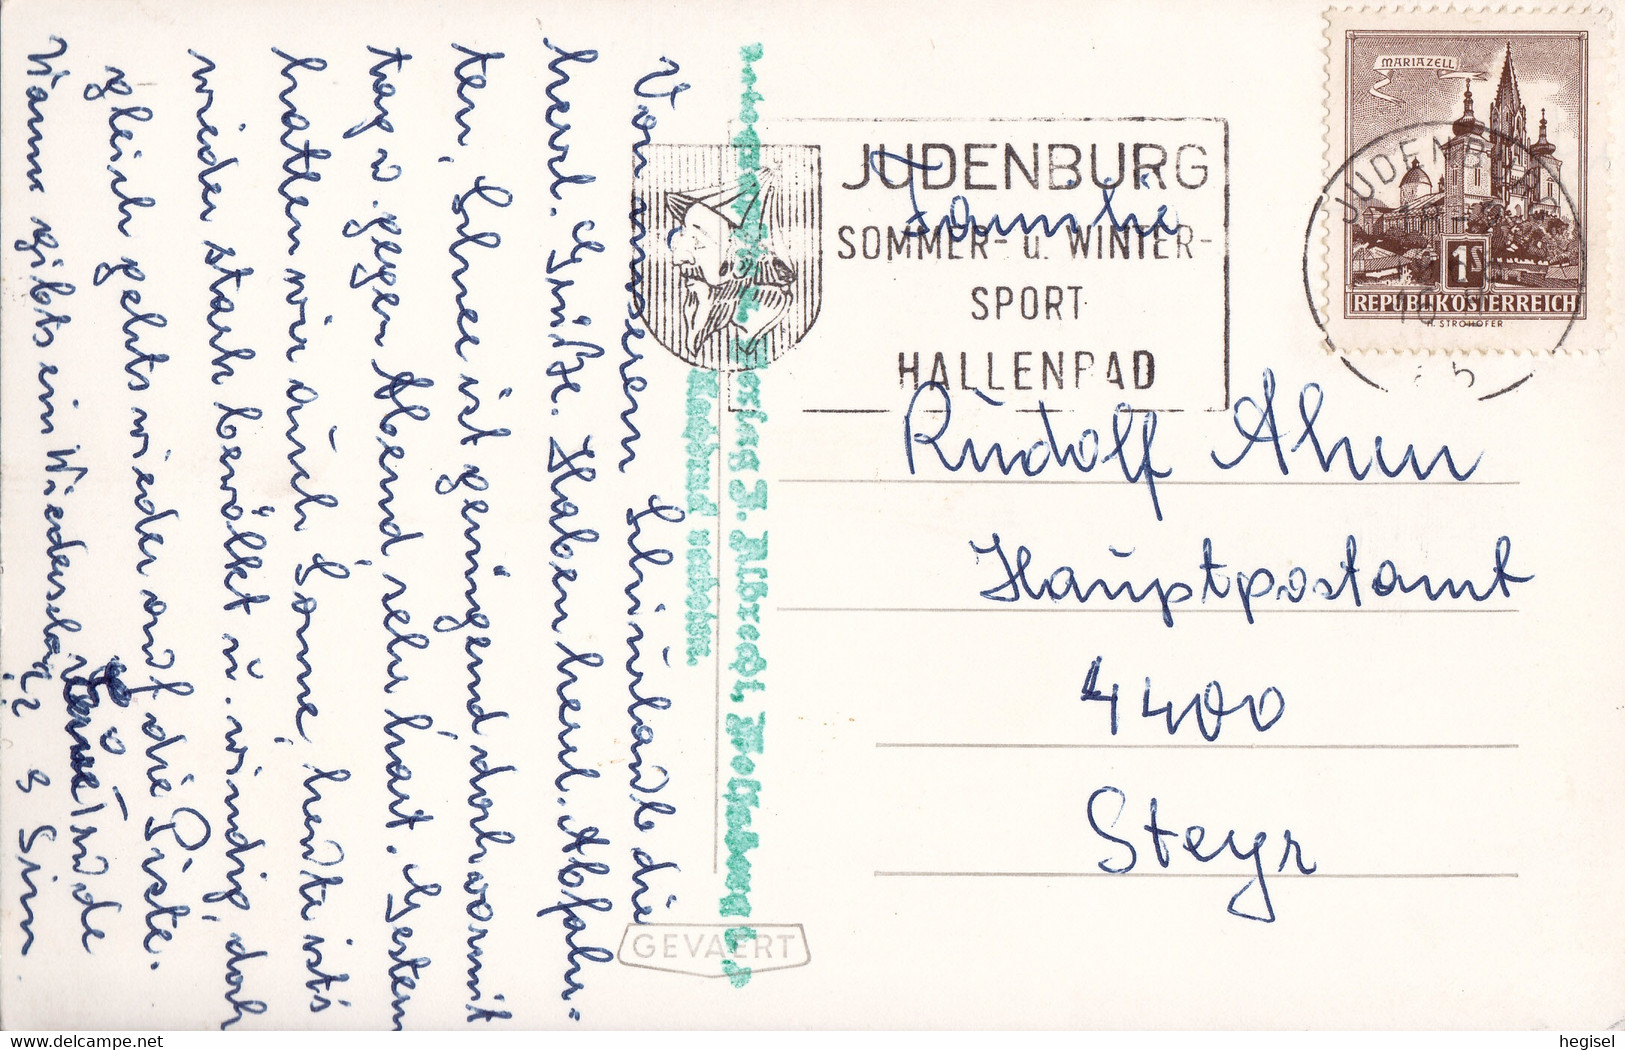 Von unserem Schiurlaub die
herzl. Grüße. Haben herrl. Abfahr-
ten, Schnee ist genügend doch vormit
tag u. gegen Abend sehr hart. Gestern
hatten wir auch Sonne, heute ist's
wieder stark bewölkt u. windig, doch
gleich gehts wieder auf die Piste.
Wann gibts ein Wiedersehen?
JUDENBURG
SOMMER- u. WINTER-
SPORT
HALLENBAD
MARIAZELL
1S
REPUBLIK ÖSTERREICH
H. STROHOFER
JUDENBURG
Familie
Rudolf Ahrer
Hauptpostamt
4400
Steyr
Verlag J. Albrecht, Wolfsberg
verboten.
GEVAERT
hegisel